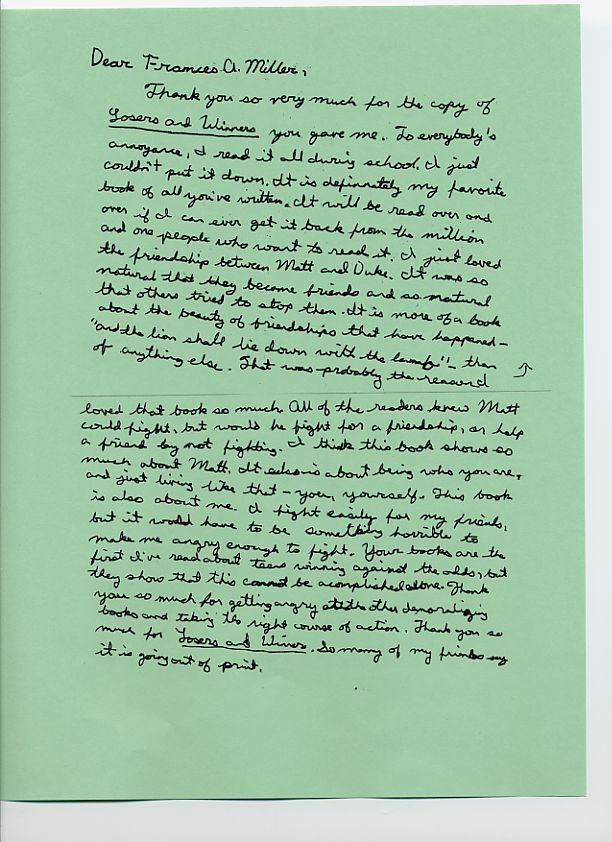 Dear Frances A. Miller,
Thank you so very much for the copy of
Losers and Winners you gave me. To everybody's
annoyance, I read it all during school. I just
couldn't put it down. It is definnately my favorite
book of all you've written. It will be read over and
over if I can ever get it back from the million
and one people who want to read it. I just loved
the friendship between Matt and Duke. It was so
natural that they become friends and so natural
that others tried to stop them. It is more of a book
about the beauty of friendships that have happened -
"and the lion shall lie down with the lamb" - than
of anything else. That was probably the reason I
loved that book so much. All of the readers knew Matt
could fight, but would he fight for a friendship, or help
a friend by not fighting. I think this book shows so
much about Matt. It also is about being who you are,
and just living like that - you, yourself. This book
is also about me. I fight easily for my friends,
but it would have to be something horrible to
make me angry enough to fight. Your books are the
first I've read about teens winning against the odds, but
they show that this cannot be acomplished alone. Thank
you so much for getting angry at the other demoralizing
books and taking the right course of action. Thank you so
much for Losers and Winers. So many of my friends say
it is going out of print.